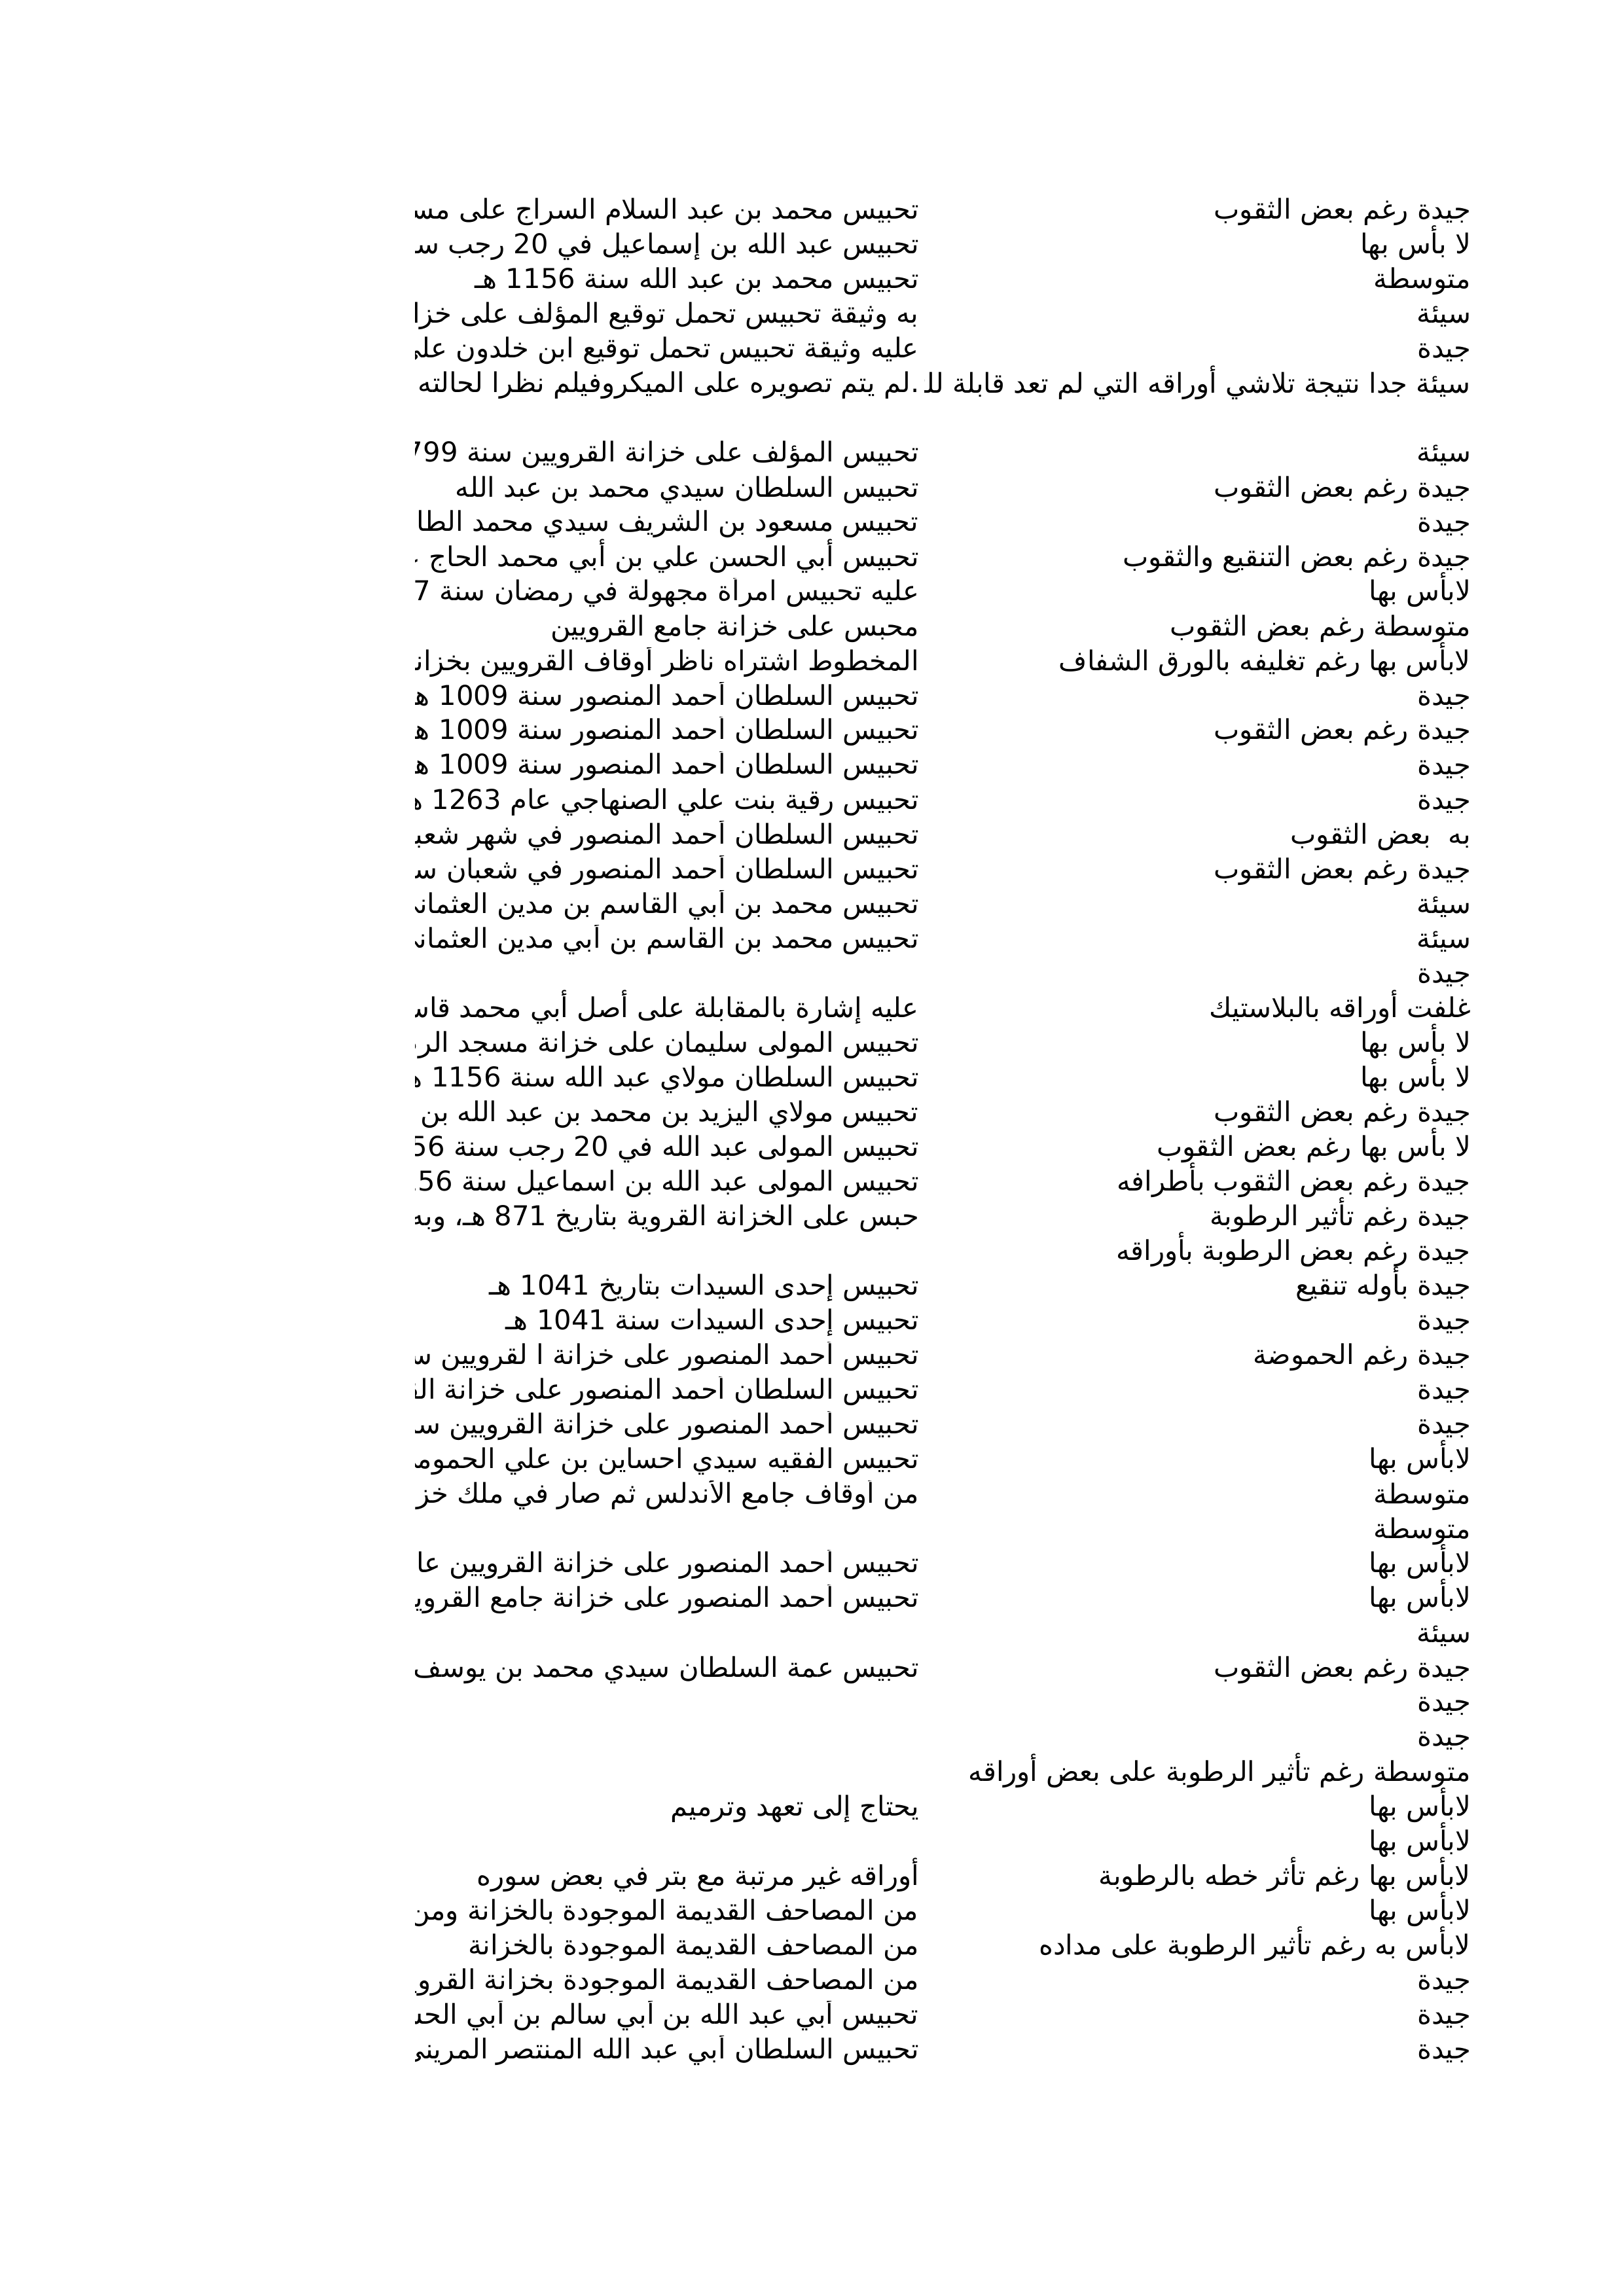 جيدة رغم بعض الثقوب تحبيس محمد بن عبد السلام السراج على
لا بأس بها تحبيس عبد الله بن إسماعيل في 20 رجب
متوسطة تحبيس محمد بن عبد الله سنة 1156 هـ
سيئة به وثيقة تحبيس تحمل توقيع المؤلف على
جيدة عليه وثيقة تحبيس تحمل توقيع ابن خلدون
سيئة جدا نتيجة تلاشي أوراقه التي لم تعد قابلة .لم يتم تصويره على الميكروفيلم نظرا لحالته
سيئة تحبيس المؤلف على خزانة القرويين سنة
جيدة رغم بعض الثقوب تحبيس السلطان سيدي محمد بن عبد الله
جيدة تحبيس مسعود بن الشريف سيدي محمد
جيدة رغم بعض التنقيع والثقوب تحبيس أبي الحسن علي بن أبي محمد الحاج
لابأس بها عليه تحبيس امرأة مجهولة في رمضان سنة
متوسطة رغم بعض الثقوب محبس على خزانة جامع القرويين
لابأس بها رغم تغليفه بالورق الشفاف المخطوط اشتراه ناظر أوقاف القرويين
جيدة تحبيس السلطان أحمد المنصور سنة 1009 هـ
جيدة رغم بعض الثقوب تحبيس السلطان أحمد المنصور سنة 1009 هـ
جيدة تحبيس السلطان أحمد المنصور سنة 1009 هـ
جيدة تحبيس رقية بنت علي الصنهاجي عام 1263 هـ
به بعض الثقوب تحبيس السلطان أحمد المنصور في شهر
جيدة رغم بعض الثقوب تحبيس السلطان أحمد المنصور في شعبان
سيئة تحبيس محمد بن أبي القاسم بن مدين
سيئة تحبيس محمد بن القاسم بن أبي مدين
جيدة
غلفت أوراقه بالبلاستيك عليه إشارة بالمقابلة على أصل أبي محمد
لا بأس بها تحبيس المولى سليمان على خزانة مسجد
لا بأس بها تحبيس السلطان مولاي عبد الله سنة 1156 هـ
جيدة رغم بعض الثقوب تحبيس مولاي اليزيد بن محمد بن عبد الله بن
لا بأس بها رغم بعض الثقوب تحبيس المولى عبد الله في 20 رجب سنة
جيدة رغم بعض الثقوب بأطرافه تحبيس المولى عبد الله بن اسماعيل سنة
جيدة رغم تأثير الرطوبة حبس على الخزانة القروية بتاريخ 871 هـ، وبه
جيدة رغم بعض الرطوبة بأوراقه
جيدة بأوله تنقيع تحبيس إحدى السيدات بتاريخ 1041 هـ
جيدة تحبيس إحدى السيدات سنة 1041 هـ
جيدة رغم الحموضة تحبيس أحمد المنصور على خزانة ا لقرويين
جيدة تحبيس السلطان أحمد المنصور على خزانة
جيدة تحبيس أحمد المنصور على خزانة القرويين
لابأس بها تحبيس الفقيه سيدي احساين بن علي
متوسطة من أوقاف جامع الأندلس ثم صار في ملك
متوسطة
لابأس بها تحبيس أحمد المنصور على خزانة القرويين
لابأس بها تحبيس أحمد المنصور على خزانة جامع
سيئة
جيدة رغم بعض الثقوب تحبيس عمة السلطان سيدي محمد بن يوسف
جيدة
جيدة
متوسطة رغم تأثير الرطوبة على بعض أوراقه
لابأس بها يحتاج إلى تعهد وترميم
لابأس بها
لابأس بها رغم تأثر خطه بالرطوبة أوراقه غير مرتبة مع بتر في بعض سوره
لابأس بها من المصاحف القديمة الموجودة بالخزانة ومن
لابأس به رغم تأثير الرطوبة على مداده من المصاحف القديمة الموجودة بالخزانة
جيدة من المصاحف القديمة الموجودة بخزانة
جيدة تحبيس أبي عبد الله بن أبي سالم بن أبي
جيدة تحبيس السلطان أبي عبد الله المنتصر